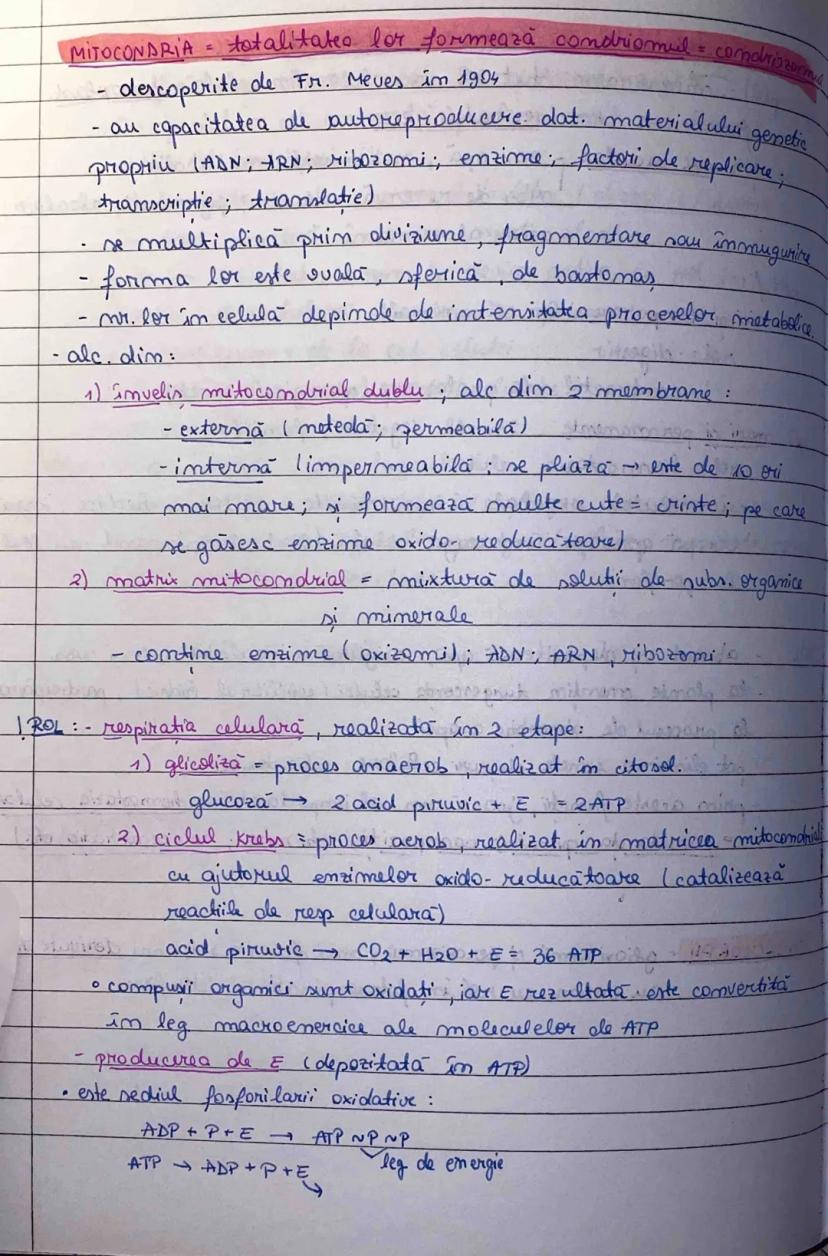 MITOCONDRIA = totalitatea lor formează condriomul = condriozomii
- descoperite de Fr. Meves în 1904
- au capacitatea de autoreproducere dat. materialului genetic
propriu (ADN; ARN; ribozomi; enzime; factori de replicare;
transcripție; translație)
• se multiplică prin diviziune, fragmentare sau înmugurire
- forma lor este ovală, sferică, de bastonaș
- nr. lor în celulă depinde de intensitatea proceselor metabolice.
- alc. din:
1) înveliș mitocondrial dublu; alc din 2 membrane:
- externă (netedă; permeabilă)
- internă (impermeabilă; se pliază → este de 10 ori
mai mare; și formează multe cute = criste; pe care
se găsesc enzime oxido-reducătoare)
2) matrix mitocondrial = mixtură de soluții de subs. organice
și minerale
- conține enzime (oxizomi); ADN, ARN, ribozomi
! ROL: - respirația celulară, realizată în 2 etape:
1) glicoliză = proces anaerob, realizat în citosol.
glucoză → 2 acid piruvic + E = 2ATP
2) ciclul Krebs = proces aerob, realizat în matricea mitocondrială
cu ajutorul enzimelor oxido-reducătoare (catalizează
reacțiile de resp celulară)
acid piruvic → CO2 + H2O + E = 36 ATP
• compușii organici sunt oxidați, iar E rezultată este convertită
în leg macroenergice ale moleculelor de ATP
- producerea de E (depozitată în ATP)
• este sediul fosforilarii oxidative:
ADP + P + E → ATP ~P ~P
ATP → ADP + P + E leg de energie